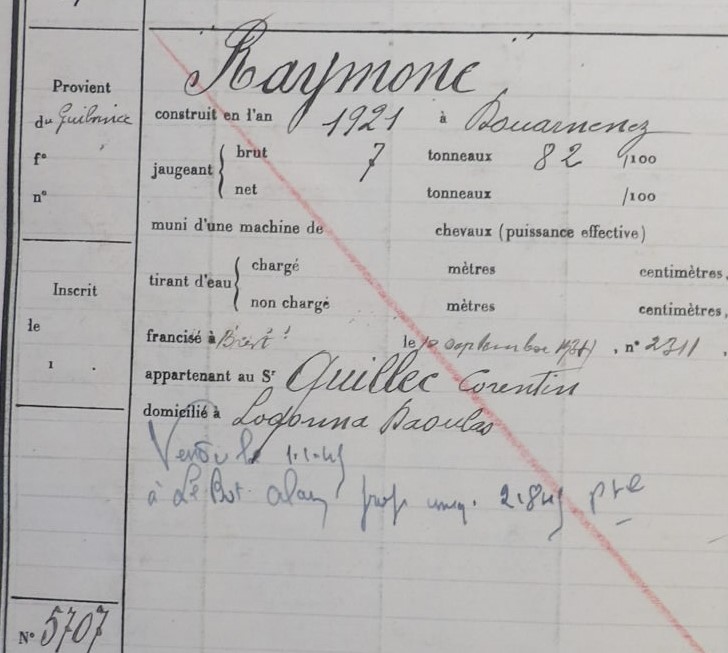 Raymone
Provient
du Guilvinec
construit en l'an 1921 à Douarnenez
fº
jaugeant brut 7 tonneaux 82 /100
nº
net tonneaux /100
muni d'une machine de chevaux (puissance effective)
Inscrit
tirant d'eau chargé mètres centimètres,
non chargé mètres centimètres,
le
francisé à Brest le septembre , nº 2311 ,
1
appartenant au Sr Quillec Corentin
domicilié à Logonna Daoulas
Vendu le 1.1.45
à Le Bot alain prop
Nº 5707